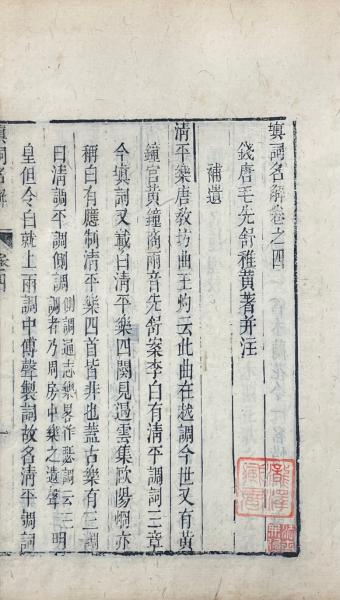 塡詞名解卷之四
錢唐毛先舒稚黃著并注
補遺
淸平樂唐敎坊曲王灼云此曲在越調今世又有黃
鐘宮黃鐘商兩音先舒案李白有淸平調詞三章
今塡詞又載白淸平樂四闋見遏雲集歐陽烱亦
稱白有應制淸平樂四首皆非也蓋古樂有三調
曰淸調平調側調側調通志樂畧作瑟調云三調者乃周房中樂之遺聲明
皇但令白就上兩調中傅聲製詞故名淸平調詞
塡詞名解
卷四